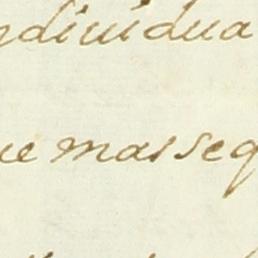 ndividua
ue mas seq